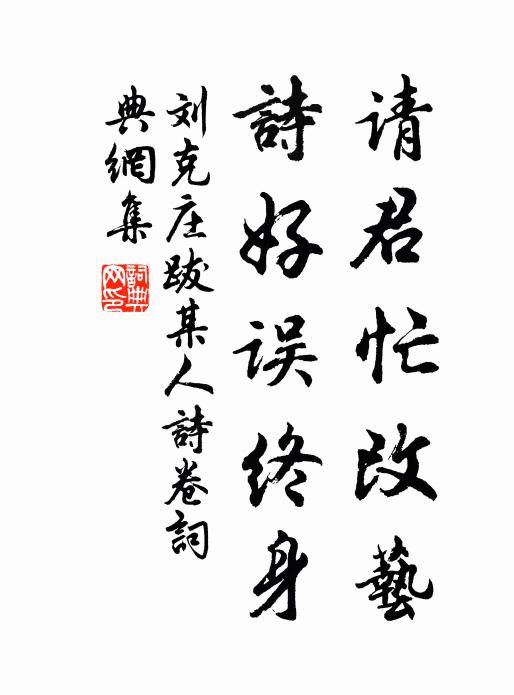 请君忙改藝
詩好误终身
刘克庄跋某人詩卷詞
典網集
詞典
网印